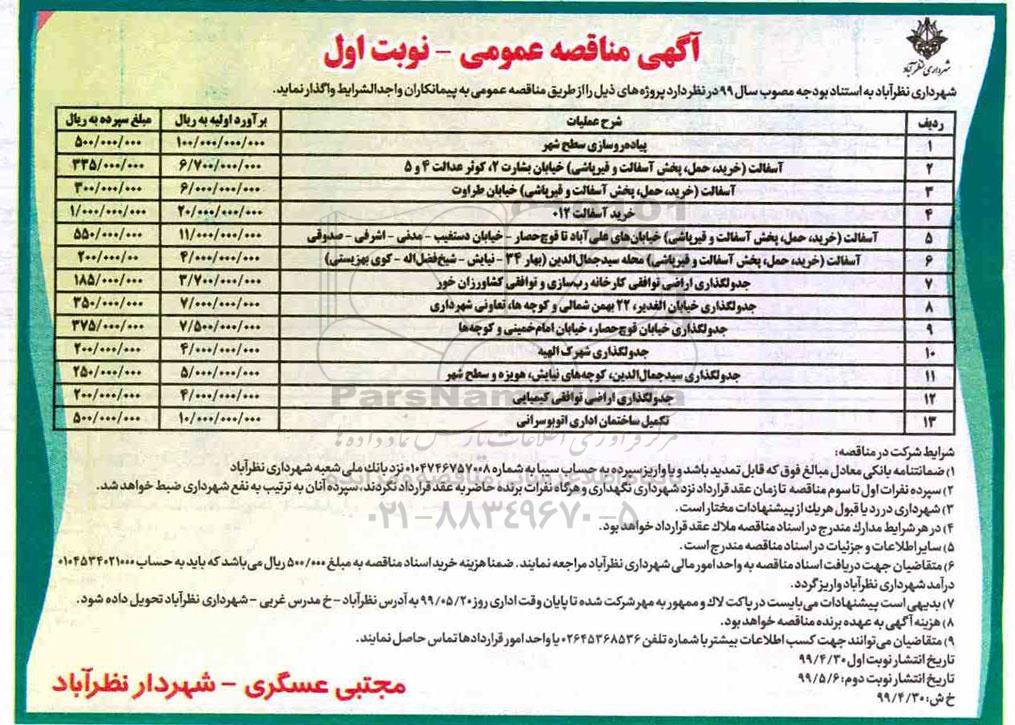 آگهی مناقصه عمومی - نوبت اول
شهرداری نظرآباد
شهرداری نظرآباد به استناد بودجه مصوب سال ۹۹ در نظر دارد پروژه‌های ذیل را از طریق مناقصه عمومی به پیمانکاران واجدالشرایط واگذار نماید.
ردیف شرح عملیات برآورد اولیه به ریال مبلغ سپرده به ریال
۱ پیاده‌روسازی سطح شهر ۱۰۰/۰۰۰/۰۰۰/۰۰۰ ۵۰۰/۰۰۰/۰۰۰
۲ آسفالت (خرید، حمل، پخش آسفالت و قیرپاشی) خیابان بشارت ۲، کوثر عدالت ۴ و ۵ ۶/۷۰۰/۰۰۰/۰۰۰ ۳۳۵/۰۰۰/۰۰۰
۳ آسفالت (خرید، حمل، پخش آسفالت و قیرپاشی) خیابان طراوت ۶/۰۰۰/۰۰۰/۰۰۰ ۳۰۰/۰۰۰/۰۰۰
۴ خرید آسفالت ۰۱۲ ۲۰/۰۰۰/۰۰۰/۰۰۰ ۱/۰۰۰/۰۰۰/۰۰۰
۵ آسفالت (خرید، حمل، پخش آسفالت و قیرپاشی) خیابان‌های علی‌آباد تا قوچ‌حصار - خیابان دستغیب - مدنی - اشرفی - صدوقی ۱۱/۰۰۰/۰۰۰/۰۰۰ ۵۵۰/۰۰۰/۰۰۰
۶ آسفالت (خرید، حمل، پخش آسفالت و قیرپاشی) محله سیدجمال‌الدین (بهار ۳۴ - نیایش - شیخ‌فضل‌اله - کوی بهزیستی) ۴/۰۰۰/۰۰۰/۰۰۰ ۲۰۰/۰۰۰/۰۰
۷ جدولگذاری اراضی توافقی کارخانه رب‌سازی و توافقی کشاورزان خور ۳/۷۰۰/۰۰۰/۰۰۰ ۱۸۵/۰۰۰/۰۰۰
۸ جدولگذاری خیابان الغدیر، ۲۲ بهمن شمالی و کوچه ها، تعاونی شهرداری ۷/۰۰۰/۰۰۰/۰۰۰ ۳۵۰/۰۰۰/۰۰۰
۹ جدولگذاری خیابان قوچ‌حصار، خیابان امام‌خمینی و کوچه‌ها ۷/۵۰۰/۰۰۰/۰۰۰ ۳۷۵/۰۰۰/۰۰۰
۱۰ جدولگذاری شهرک الهیه ۴/۰۰۰/۰۰۰/۰۰۰ ۲۰۰/۰۰۰/۰۰۰
۱۱ جدولگذاری سیدجمال‌الدین، کوچه‌های نیایش، هویزه و سطح شهر ۵/۰۰۰/۰۰۰/۰۰۰ ۲۵۰/۰۰۰/۰۰۰
۱۲ جدولگذاری اراضی توافقی کیمیایی ۴/۰۰۰/۰۰۰/۰۰۰ ۲۰۰/۰۰۰/۰۰۰
۱۳ تکمیل ساختمان اداری اتوبوسرانی ۱۰/۰۰۰/۰۰۰/۰۰۰ ۵۰۰/۰۰۰/۰۰۰
ParsNamadData
مرکز فرآوری اطلاعات پارس نماد داده‌ها
۰۲۱-۸۸۳۴۹۶۷۰-۵
شرایط شرکت در مناقصه:
۱) ضمانتنامه بانکی معادل مبالغ فوق که قابل تمدید باشد و یا واریز سپرده به حساب سیبا به شماره ۰۱۰۴۷۴۶۷۵۷۰۰۸ نزد بانک ملی شعبه شهرداری نظرآباد
۲) سپرده نفرات اول تا سوم مناقصه تا زمان عقد قرارداد نزد شهرداری نگهداری و هرگاه نفرات برنده حاضر به عقد قرارداد نگردند، سپرده آنان به ترتیب به نفع شهرداری ضبط خواهد شد.
۳) شهرداری در رد یا قبول هریک از پیشنهادات مختار است.
۴) در هر شرایط مدارک مندرج در اسناد مناقصه ملاک عقد قرارداد خواهد بود.
۵) سایر اطلاعات و جزئیات در اسناد مناقصه مندرج است.
۶) متقاضیان جهت دریافت اسناد مناقصه به واحد امور مالی شهرداری نظرآباد مراجعه نمایند. ضمنا هزینه خرید اسناد مناقصه به مبلغ ۵۰۰/۰۰۰ ریال می‌باشد که باید به حساب ۰۱۰۴۵۳۴۰۲۱۰۰۰
درآمد شهرداری نظرآباد واریز گردد.
۷) بدیهی است پیشنهادات می‌بایست در پاکت لاک و ممهور به مهر شرکت شده تا پایان وقت اداری روز ۹۹/۰۵/۲۰ به آدرس نظرآباد - خ مدرس غربی - شهرداری نظرآباد تحویل داده شود.
۸) هزینه آگهی به عهده برنده مناقصه خواهد بود.
۹) متقاضیان می‌توانند جهت کسب اطلاعات بیشتر با شماره تلفن ۰۲۶۴۵۳۶۸۵۳۶ یا واحد امور قراردادها تماس حاصل نمایند.
تاریخ انتشار نوبت اول ۹۹/۴/۳۰
تاریخ انتشار نوبت دوم: ۹۹/۵/۶
خ ش: ۹۹/۴/۳۰
مجتبی عسگری - شهردار نظرآباد